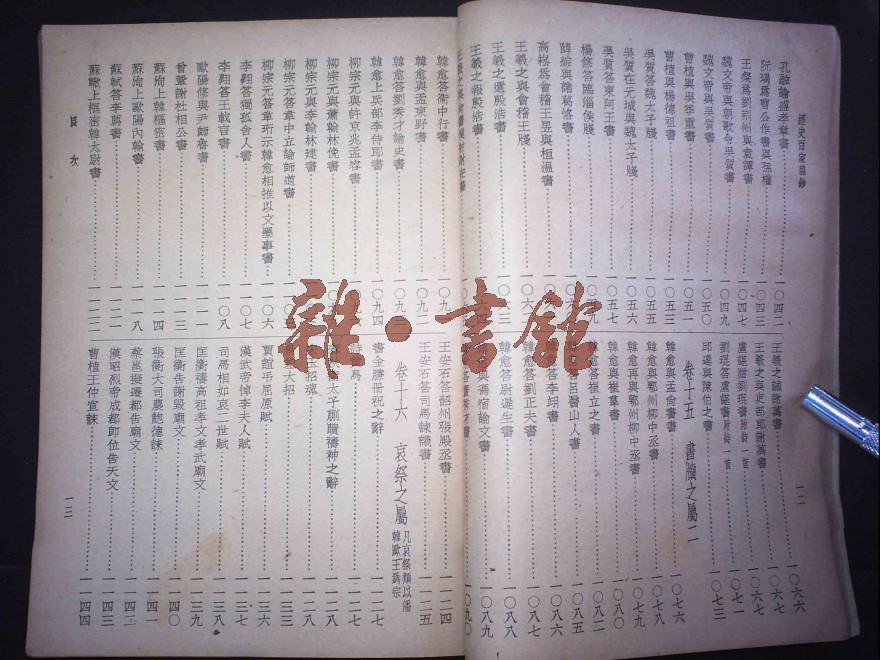 經史百家雜鈔
孔融論盛孝章書 一〇四二
阮瑀為曹公作書與孫權 一〇四三
王粲為劉荊州與袁譚書 一〇四七
魏文帝與朝歌令吳質書 一〇四九
魏文帝與吳質書 一〇五〇
曹植與楊德祖書
曹植與吳季重書 一〇五三
吳質答魏太子牋 一〇五五
吳質在元城與魏太子牋
吳質答東阿王書 一〇五七
楊修答臨淄侯牋
薛綜與諸葛恪書
高崧為會稽王昱與桓溫書
王羲之與會稽王牋
王羲之遺殷浩書
王羲之報殷浩書
王羲之誡謝萬書 一〇六六
王羲之與吏部郎謝萬書 一〇六七
盧諶贈劉琨書附詩一首 一〇六七
劉琨答盧諶書附詩一首
邱遲與陳伯之書 一〇七三
卷十五 書牘之屬二
韓愈與孟尚書書 一〇七六
韓愈與鄂州柳中丞書 一〇七八
韓愈再與鄂州柳中丞書 一〇七九
韓愈與崔羣書 一〇八〇
韓愈答崔立之書 一〇八二
呂醫山人書 一〇八五
韓愈答李翊書 一〇八六
韓愈答劉正夫書 一〇八七
韓愈答尉遲生書 一〇八八
與馮宿論文書 一〇八九
一〇九〇
一二
韓愈答衞中行書
韓愈與孟東野書
韓愈答劉秀才論史書
韓愈上兵部李侍郎書 一〇九四
柳宗元與許京兆孟容書
柳宗元與蕭翰林俛書
柳宗元與李翰林建書
柳宗元答韋中立論師道書
柳宗元答韋珩示韓愈相推以文墨事書 一一〇六
李翺答獨孤舍人書 一一〇七
李翺答王載言書 一一〇八
歐陽修與尹師魯書 一一一一
曾鞏謝杜相公書 一一一三
蘇洵上韓樞密書 一一一四
蘇洵上歐陽內翰書 一一一八
蘇軾答李廌書 一一二一
蘇轍上樞密韓太尉書 一一二二
王安石答韶州張殿丞書 一一二四
王安石答司馬諫議書 一一二五
卷十六 哀祭之屬 凡哀祭類以潘韓歐王為宗
書金縢冊祝之辭 一一二七
一一二七
太子蒯聵禱神之辭 一一二八
招魂 一一二八
大招 一一三三
賈誼弔屈原賦 一一三六
漢武帝悼李夫人賦 一一三七
司馬相如哀二世賦 一一三八
匡衡禱高祖孝文孝武廟文 一一三九
匡衡告謝毀廟文 一一四〇
張衡大司農鮑德誄 一一四一
蔡邕擬遷都告廟文 一一四二
漢昭烈帝成都即位告天文 一一四三
曹植王仲宣誄 一一四四
目次
一三
雜·書館